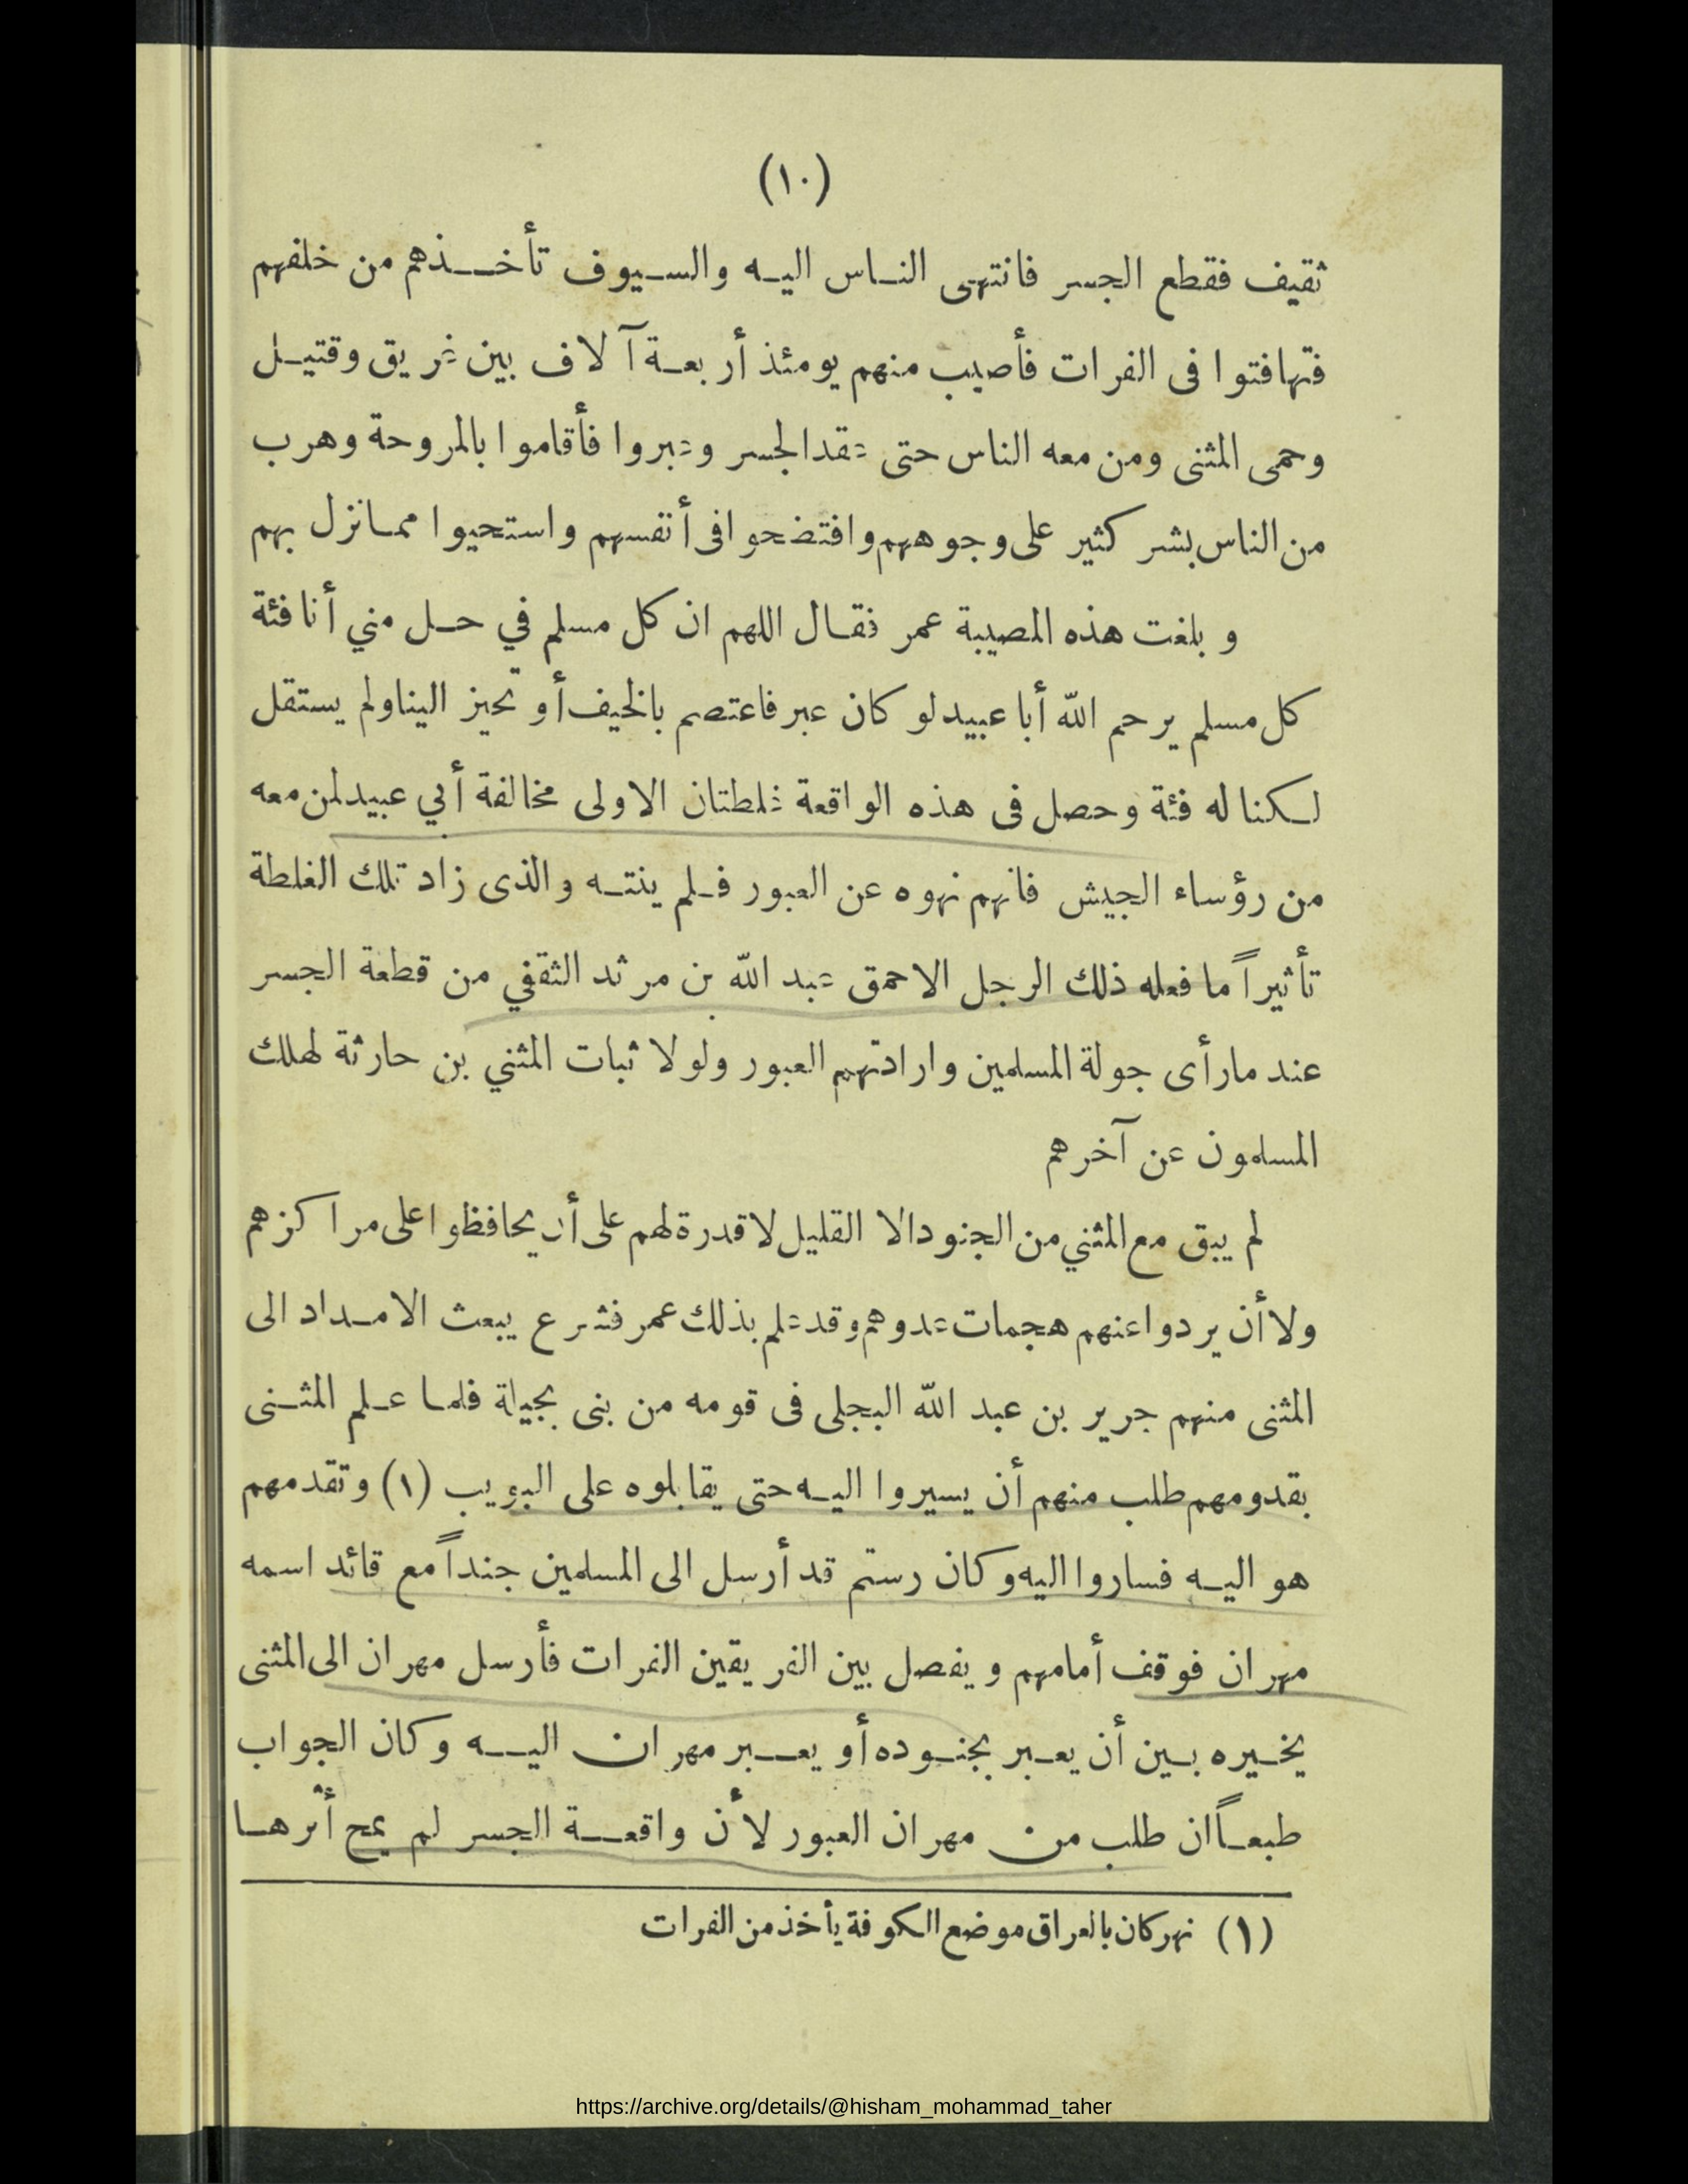 (١٠)
ثقيف فقطع الجسر فانتهى الناس اليه والسيوف تأخذهم من خلفهم
فتهافتوا فى الفرات فأصيب منهم يومئذ أربعة آلاف بين غريق وقتيل
وحمى المثنى ومن معه الناس حتى عقد الجسر وعبروا فأقاموا بالمروحة وهرب
من الناس بشر كثير على وجوههم وافتضحوا فى أنفسهم واستحيوا مما نزل بهم
وبلغت هذه المصيبة عمر فقال اللهم ان كل مسلم في حل مني أنا فئة
كل مسلم يرحم الله أبا عبيد لو كان عبر فاعتصم بالخيف أو تحيز الينا ولم يستقل
لكنا له فئة وحصل فى هذه الواقعة غلطتان الاولى مخالفة أبي عبيد لمن معه
من رؤساء الجيش فانهم نهوه عن العبور فلم ينته والذى زاد تلك الغلطة
تأثيراً ما فعله ذلك الرجل الاحمق عبد الله بن مرثد الثقفي من قطعة الجسر
عند مارأى جولة المسلمين وارادتهم العبور ولولا ثبات المثني بن حارثة لهلك
المسلمون عن آخرهم
لم يبق مع المثني من الجنود الا القليل لا قدرة لهم على أن يحافظوا على مراكزهم
ولا أن يردوا عنهم هجمات عدوهم وقد علم بذلك عمر فشرع يبعث الامداد الى
المثنى منهم جرير بن عبد الله البجلى فى قومه من بنى بجيلة فلما علم المثنى
بقدومهم طلب منهم أن يسيروا اليه حتى يقابلوه على البويب (١) وتقدمهم
هو اليه فساروا اليه وكان رستم قد أرسل الى المسلمين جنداً مع قائد اسمه
مهران فوقف أمامهم ويفصل بين الفريقين الفرات فأرسل مهران الى المثنى
يخيره بين أن يعبر بجنوده أو يعبر مهران اليه وكان الجواب
طبعاً ان طلب من مهران العبور لأن واقعة الجسر لم يمح أثرها
(١) نهر كان بالعراق موضع الكوفة يأخذ من الفرات
https://archive.org/details/@hisham_mohammad_taher